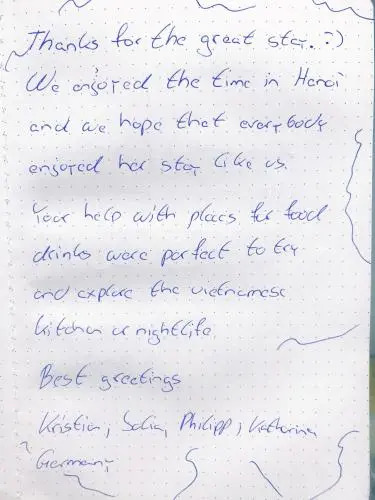 Thanks for the great stay. :)
We enjoyed the time in Hanoi
and we hope that everybody
enjoyed her stay like us.
Your help with places for food
drinks were perfect to try
and explore the vietnamese
kitchen or nightlife
Best greetings
Kristin, Philipp, Katharina
Germany